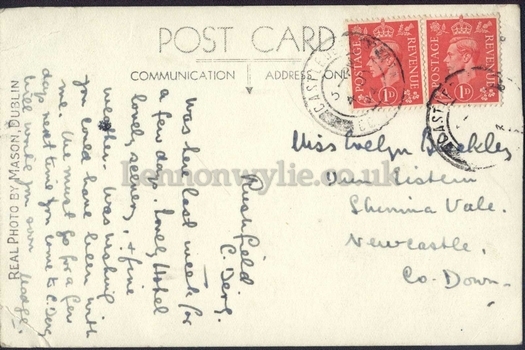 POST CARD
COMMUNICATION
ADDRESS ONLY
POSTAGE REVENUE
1D
POSTAGE REVENUE
1D
CASTLE
CASTLE
lennonwylie.co.uk
Rushfield
C. Derry.
Was here last week for
a few days. Lovely Hotel
lovely scenery, & fine
weather. Was wishing
you could have been with
me. We must go for a few
days next time you come to C. Derry
Will write you soon Madge.
REAL PHOTO BY MASON, DUBLIN
Miss Evelyn Barkley
Shimna Vale.
Newcastle.
Co. Down.